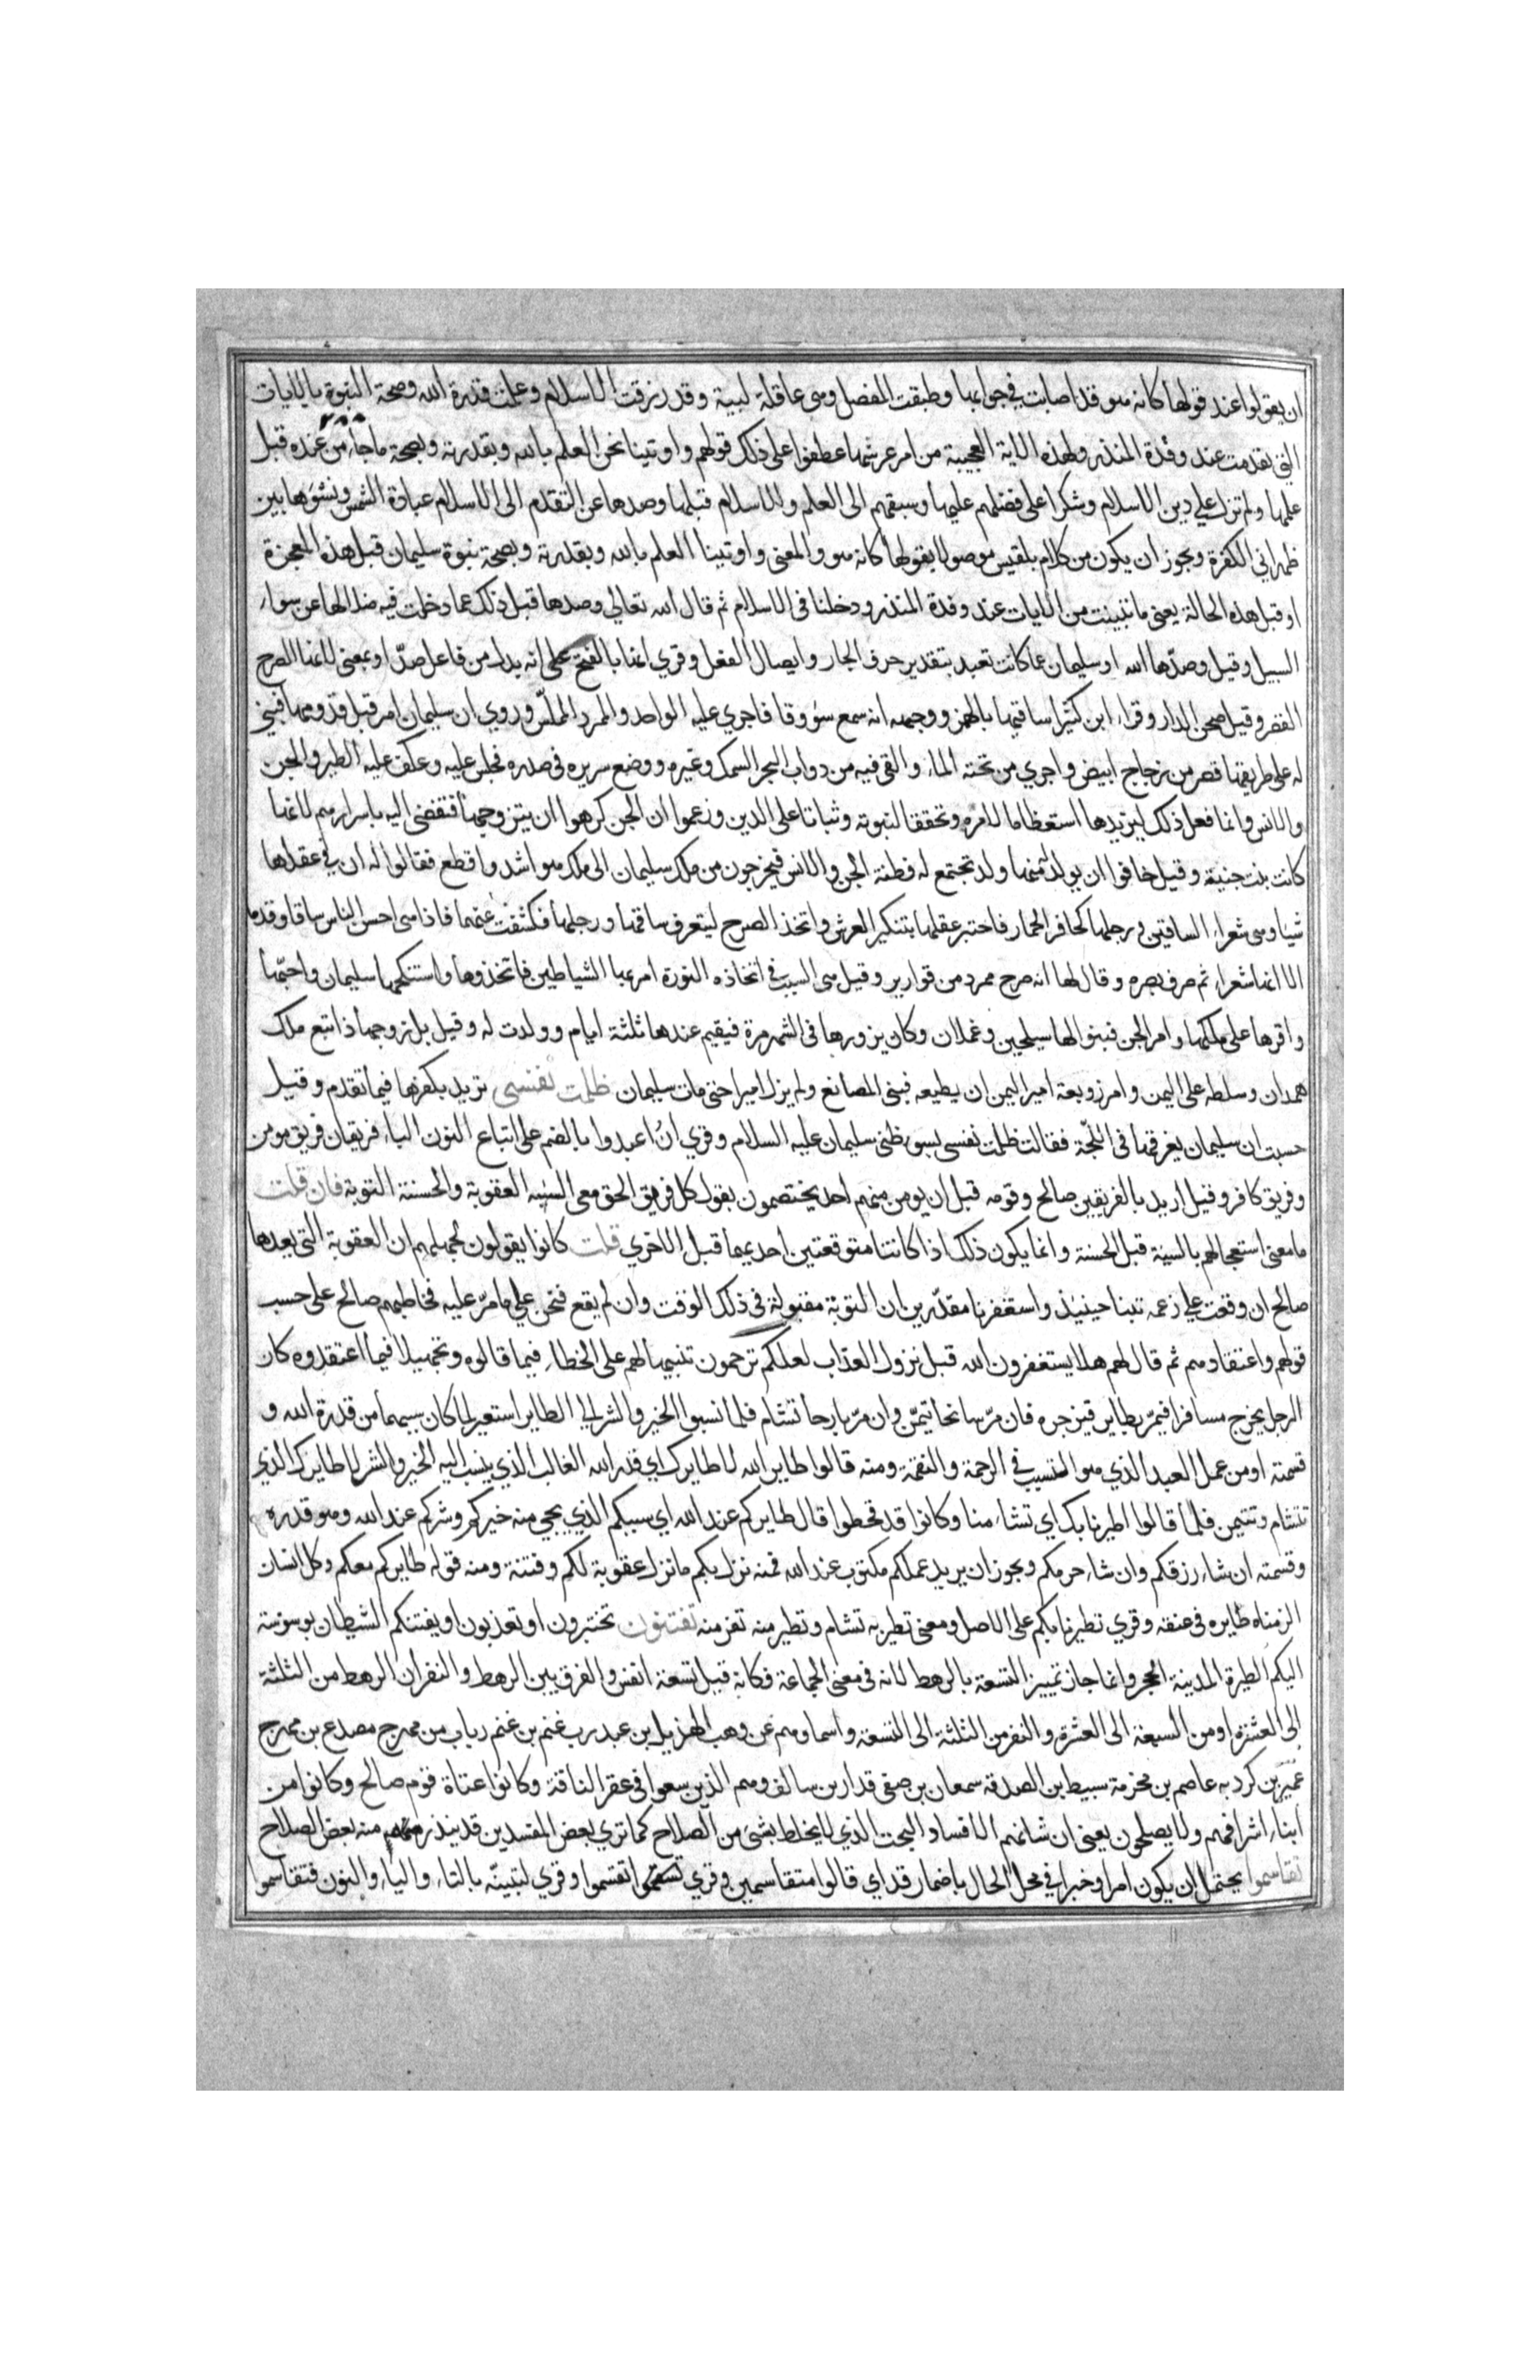 ان يقولوا عند قولها كانه هو قد اصابت في جوابها وطبقت المفصل وهي عاقلة لبيبة وقد رزقت الاسلام وعلمت قدرة الله وصحة النبوة بالايات
التي تقدمت عند وفدة المنذر وبهذه الاية العجيبة من امر عرشها عطفوا على ذلك قولهم واوتينا نحن العلم بالله وبقدرته وبصحة ما جاء من عنده قبل
علمها ولم نزل علي دين الاسلام وشكرا على فضلهم عليها وسبقهم الى العلم والاسلام قبلها وصدها عن التقدم الى الاسلام عبادة الشمس ونشوها بين
ظهراني الكفرة ويجوز ان يكون من كلام بلقيس موصولا بقولها كانه هو والمعنى واوتينا العلم بالله وبقدرته وبصحة نبوة سليمان قبل هذه المعجزة
او قبل هذه الحالة يعني ما تبينت من الايات عند وفدة المنذر ودخلنا في الاسلام ثم قال الله تعالي وصدها قبل ذلك عما دخلت فيه ضلالها عن سواء
السبيل وقيل وصدّها الله او سليمان عما كانت تعبد بتقدير حرف الجار وايصال الفعل وقري انها بالفتح على انه بدل من فاعل صدّ او بمعنى لانها الصرح
القصر وقيل صحن الدار وقراء ابن كثير ساقيها بالهمز ووجهه انه سمع سؤوقا فاجري عليه الواحد والممرد المملّس وروي ان سليمان امر قبل قدومها فبني
له على طريقها قصر من زجاج ابيض واجري من تحته الماء والقى فيه من دواب البحر السمك وغيره ووضع سريره في صدره فجلس عليه وعكف عليه الطير والجن
والانس وانما فعل ذلك ليزيدها استعظاما لامره وتحققا لنبوته وثباتا على الدين وزعموا ان الجن كرهوا ان يتزوجها فتفضى اليه باسرارهم لانها
كانت بنت جنية وقيل خافوا ان يولد له منها ولد تجتمع له فطنة الجن والانس فيخرجون من ملك سليمان الى ملك هو اشد واقطع فقالوا له ان في عقلها
شيا وهي شعراء الساقين ورجلها كحافر الحمار فاختبر عقلها بتنكير العرش واتخذ الصرح ليتعرف ساقها ورجلها فكشفت عنهما فاذا هي احسن الناس ساقا وقدما
الا انها شعراء ثم صرف بصره وقال لها انه صرح ممرد من قوارير وقيل هي السبب في اتخاذه النورة امر بها الشياطين فاتخذوها واستنكحها سليمان واحبّها
واقرها على ملكها وامر الجن فبنوا لها سيلحين وغملان وكان يزورها في الشهر مرة فيقيم عندها ثلثة ايام وولدت له وقيل بل زوجها ذا تبع ملك
همدان وسلطه على اليمن وامر زوبعة امير اليمن ان يطيعه فبنى المصانع ولم يزل اميرا حتى مات سليمان ظلمت نفسي تريد بكفرها فيما تقدم وقيل
حسبت ان سليمان يغرقها في اللجّة فقالت ظلمت نفسي بسوء ظني سليمان عليه السلام وقري ان اعبدوا بالضم على اتباع النون الباء فريقان فريق مومن
وفريق كافر وقيل اريد بالفريقين صالح وقومه قبل ان يومن منهم احد يختصمون يقول كل فريق الحق معي السيئه العقوبة والحسنة التوبة فان قلت
ما معنى استعجالهم بالسيئة قبل الحسنة وانما يكون ذلك اذا كانتا متوقعتين احديهما قبل الاخري قلت كانوا يقولون لجهلهم ان العقوبة التي يعدها
صالح ان وقعت علي زعمه تبنا حينيذ واستغفرنا مقدّرين ان التوبة مقبولة في ذلك الوقت وان لم يقع فنحن علي ما مرّ عليه فخاطبهم صالح على حسب
قولهم واعتقادهم ثم قال لهم هلا يستغفرون الله قبل نزول العذاب لعلكم ترحمون تنبيها لهم على الخطاء فيما قالوه وتجهيلا فيما اعتقدوه كان
الرجل يخرج مسافرا فيمرّ بطاير فيزجره فان مرّ سانحا تيمّن وان مرّ بارحا تشام فلما نسبوا الخير والشر الي الطاير استعير لما كان سببهما من قدرة الله و
قسمته او من عمل العبد الذي هو المتسبب في الرحمة والنقمة ومنه قالوا طاير الله لا طايرك اي قدر الله الغالب الذي ينسب اليه الخير والشر لا طايرك الذي
تتشام وتتيمن فلما قالوا اطيرنا بك اي تشاء منا وكانوا قد قحطوا قال طايركم عند الله اي سببكم الذي يجي منه خيركم وشركم عند الله وهو قدره
وقسمته ان شاء رزقكم وان شاء حرمكم ويجوز ان يريد عملكم مكتوب عند الله فمنه نزل بكم ما نزل عقوبة لكم وفتنة ومنه قوله طايركم معكم وكل انسان
الزمناه طايره في عنقه وقري تطيرنا بكم على الاصل ومعنى تطير به تشام وتطير منه تفر منه تفتنون تختبرون او تعذبون او يفتنكم الشيطان بوسوسة
اليكم الطيرة المدينة الحجر وانما جاز تمييز التسعة بالرهط لانه في معنى الجماعة فكانه قيل تسعة انفس والفرق بين الرهط والنفر ان الرهط من الثلثة
الى العشرة او من السبعة الى العشرة والنفر من الثلثة الى التسعة واسماوهم عن وهب الهذيل بن عبد رب غنم بن غنم رياب بن مهرج مصدع بن مهرج
عمير بن كردبه عاصم بن مخرمة سبيط بن الصدقه سمعان بن صفى قدار بن سالف وهم الذين سعوا في عقر الناقة وكانوا عتاة قوم صالح وكانوا من
ابناء اشرافهم ولا يصلحون يعني ان شانهم الافساد البحت الذي لا يخلط بشي من الصلاح كما تري بعض المفسدين قد يندر منه بعض الصلاح
تقاسموا يحتمل ان يكون امرا وخبرا في محل الحال باضمار قد اي قالوا متقاسمين وقري تقسموا وقري لتبيتنّه بالتاء والياء والنون فتقاسموا